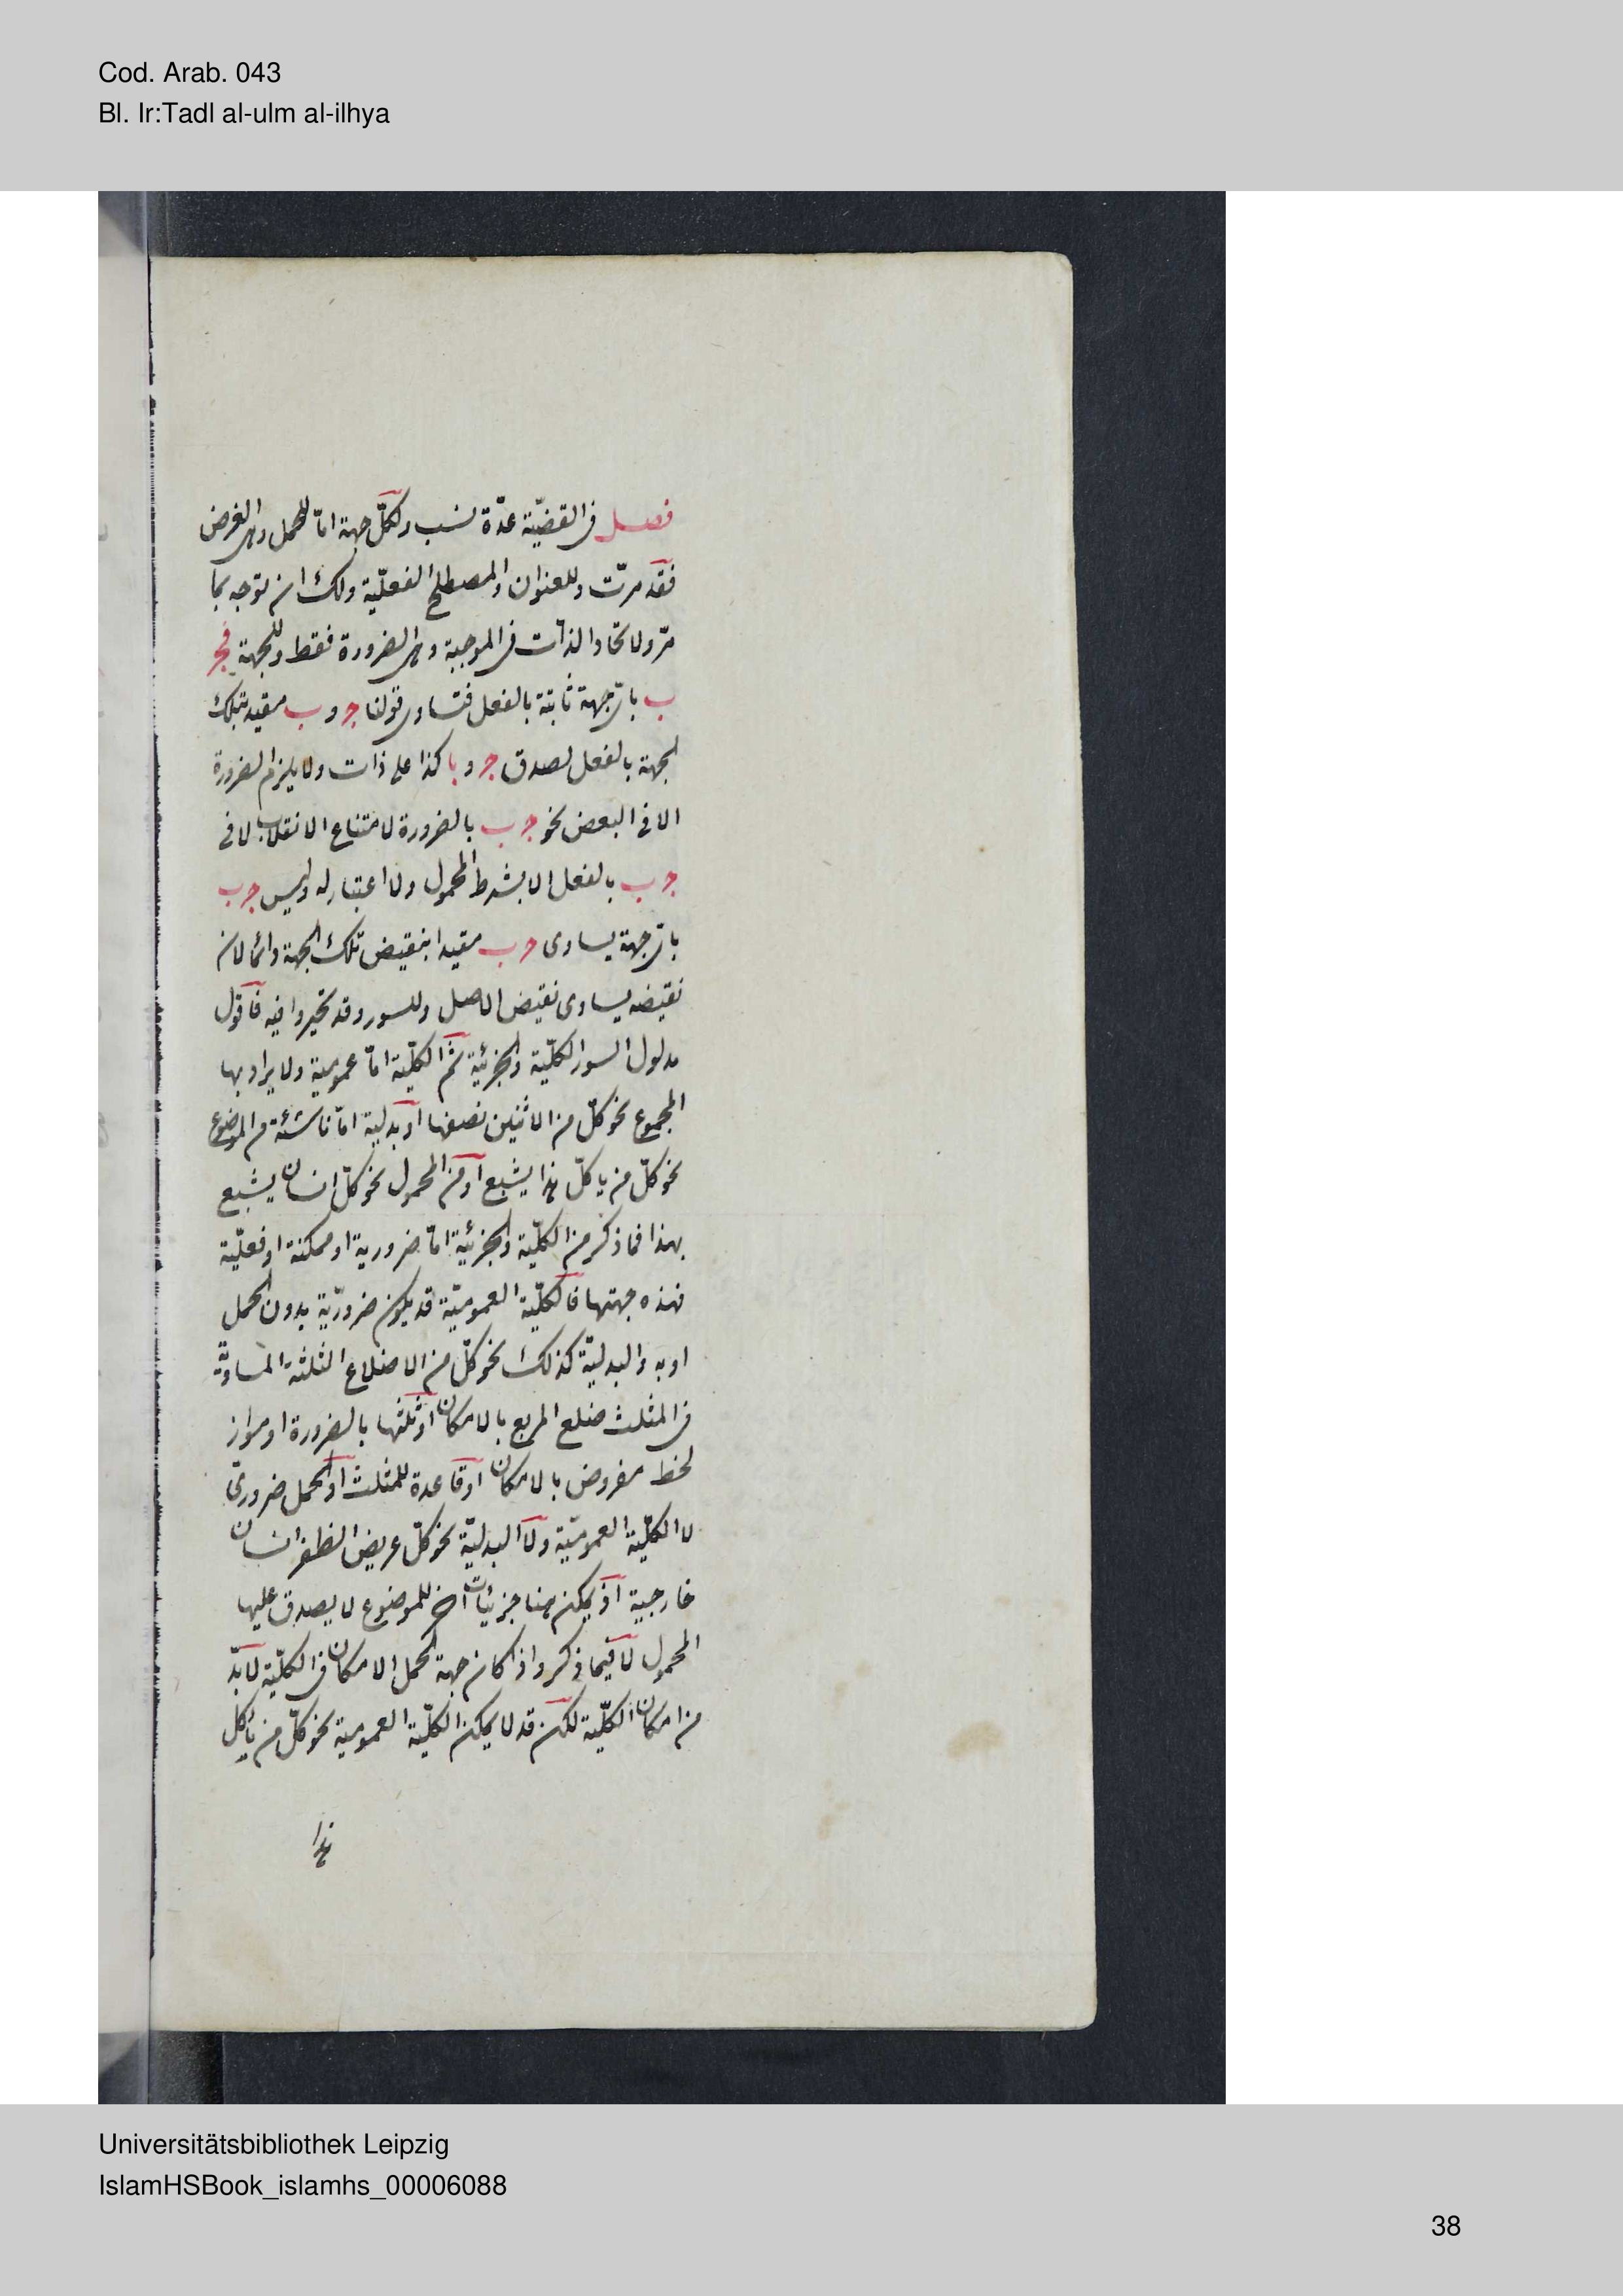 Cod. Arab. 043
Bl. Ir:Tadl al-ulm al-ilhya
فصل فى القضيّة عدّة نسب ولكلّ جهة امّا للحمل وهى الغرض
فقد مرّت وللعنوان والمصطلح الفعليّة ولك ان توجه بما
مرّ ولاتحاد الذات فى الموجبة وهى الضرورة فقط وللجهة فجـ
ب باىّ جهة ثابتة بالفعل فتساوى قولنا جـ و ب مقيد بتلك
الجهة بالفعل لصدق جـ و با كذا على ذات ولا يلزم الضرورة
الا فى البعض نحو جـ ب بالضرورة لامتناع الانقلاب لا فى
جـ ب بالفعل الا بشرط المحمول ولا اعتبار له وليس جـ ب
باىّ جهة يساوى جـ ب مقيدا بنقيض تلك الجهة دائما لان
نقيضه يساوى نقيض الاصل وللسور وقد تحيروا فيه فاقول
مدلول السور الكلّية والجزئية ثم الكلّية امّا عمومية ولا يراد بها
المجموع نحو كلّ من الاثنين نصفها او بدلية امّا ناشئة من الموضوع
نحو كلّ من ياكل هذا يشبع او من المحمول نحو كلّ انسان يشبع
بهذا فما ذكر من الكلّية والجزئية امّا ضرورية او ممكنة او فعليّة
فهذه جهتها فالكلّية العموميّة قد يكون ضروريّة بدون الحمل
او به والبدليّة كذلك نحو كلّ من الاضلاع الثلثة المساوية
فى المثلث ضلع المربع بالامكان او ثلثها بالضرورة او مواز
لخط مفروض بالامكان او قاعدة للمثلث او الحمل ضرورى
لا الكلّية العموميّة ولا البدليّة نحو كلّ عريض الظفر انسان
خارجية اذ يمكن هنا جزئيات اخر للموضوع لا يصدق عليها
المحمول لا فيما ذكر واذا كان جهة الحمل الامكان فى الكلّية لا بدّ
من امكان الكلّية لكن قد لا يمكن الكلّية العمومية نحو كلّ من ياكل
هذا
Universitätsbibliothek Leipzig
IslamHSBook_islamhs_00006088
38